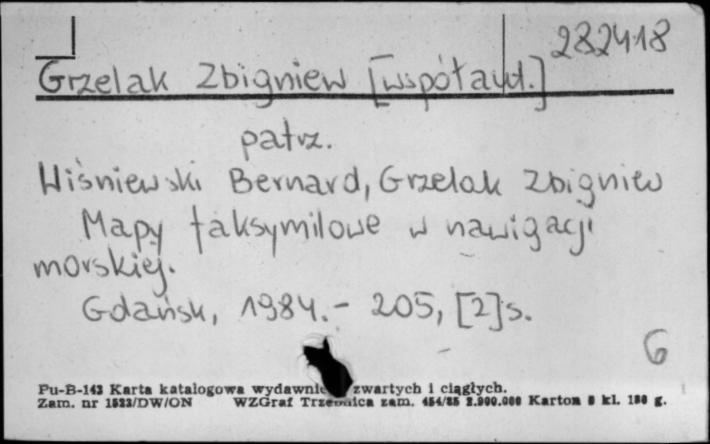 282418
Grzelak Zbigniew [współaut.]
patrz.
Wiśniewski Bernard, Grzelak Zbigniew
Mapy faksymilowe w nawigacji
morskiej.
Gdańsk, 1984.- 205, [2]s.
G
Pu-B-143 Karta katalogowa wydawnic zwartych i ciągłych.
Zam. nr 1523/DW/ON WZGraf Trzebnica zam. 454/85 2.900.000 Karton kl. 180 g.